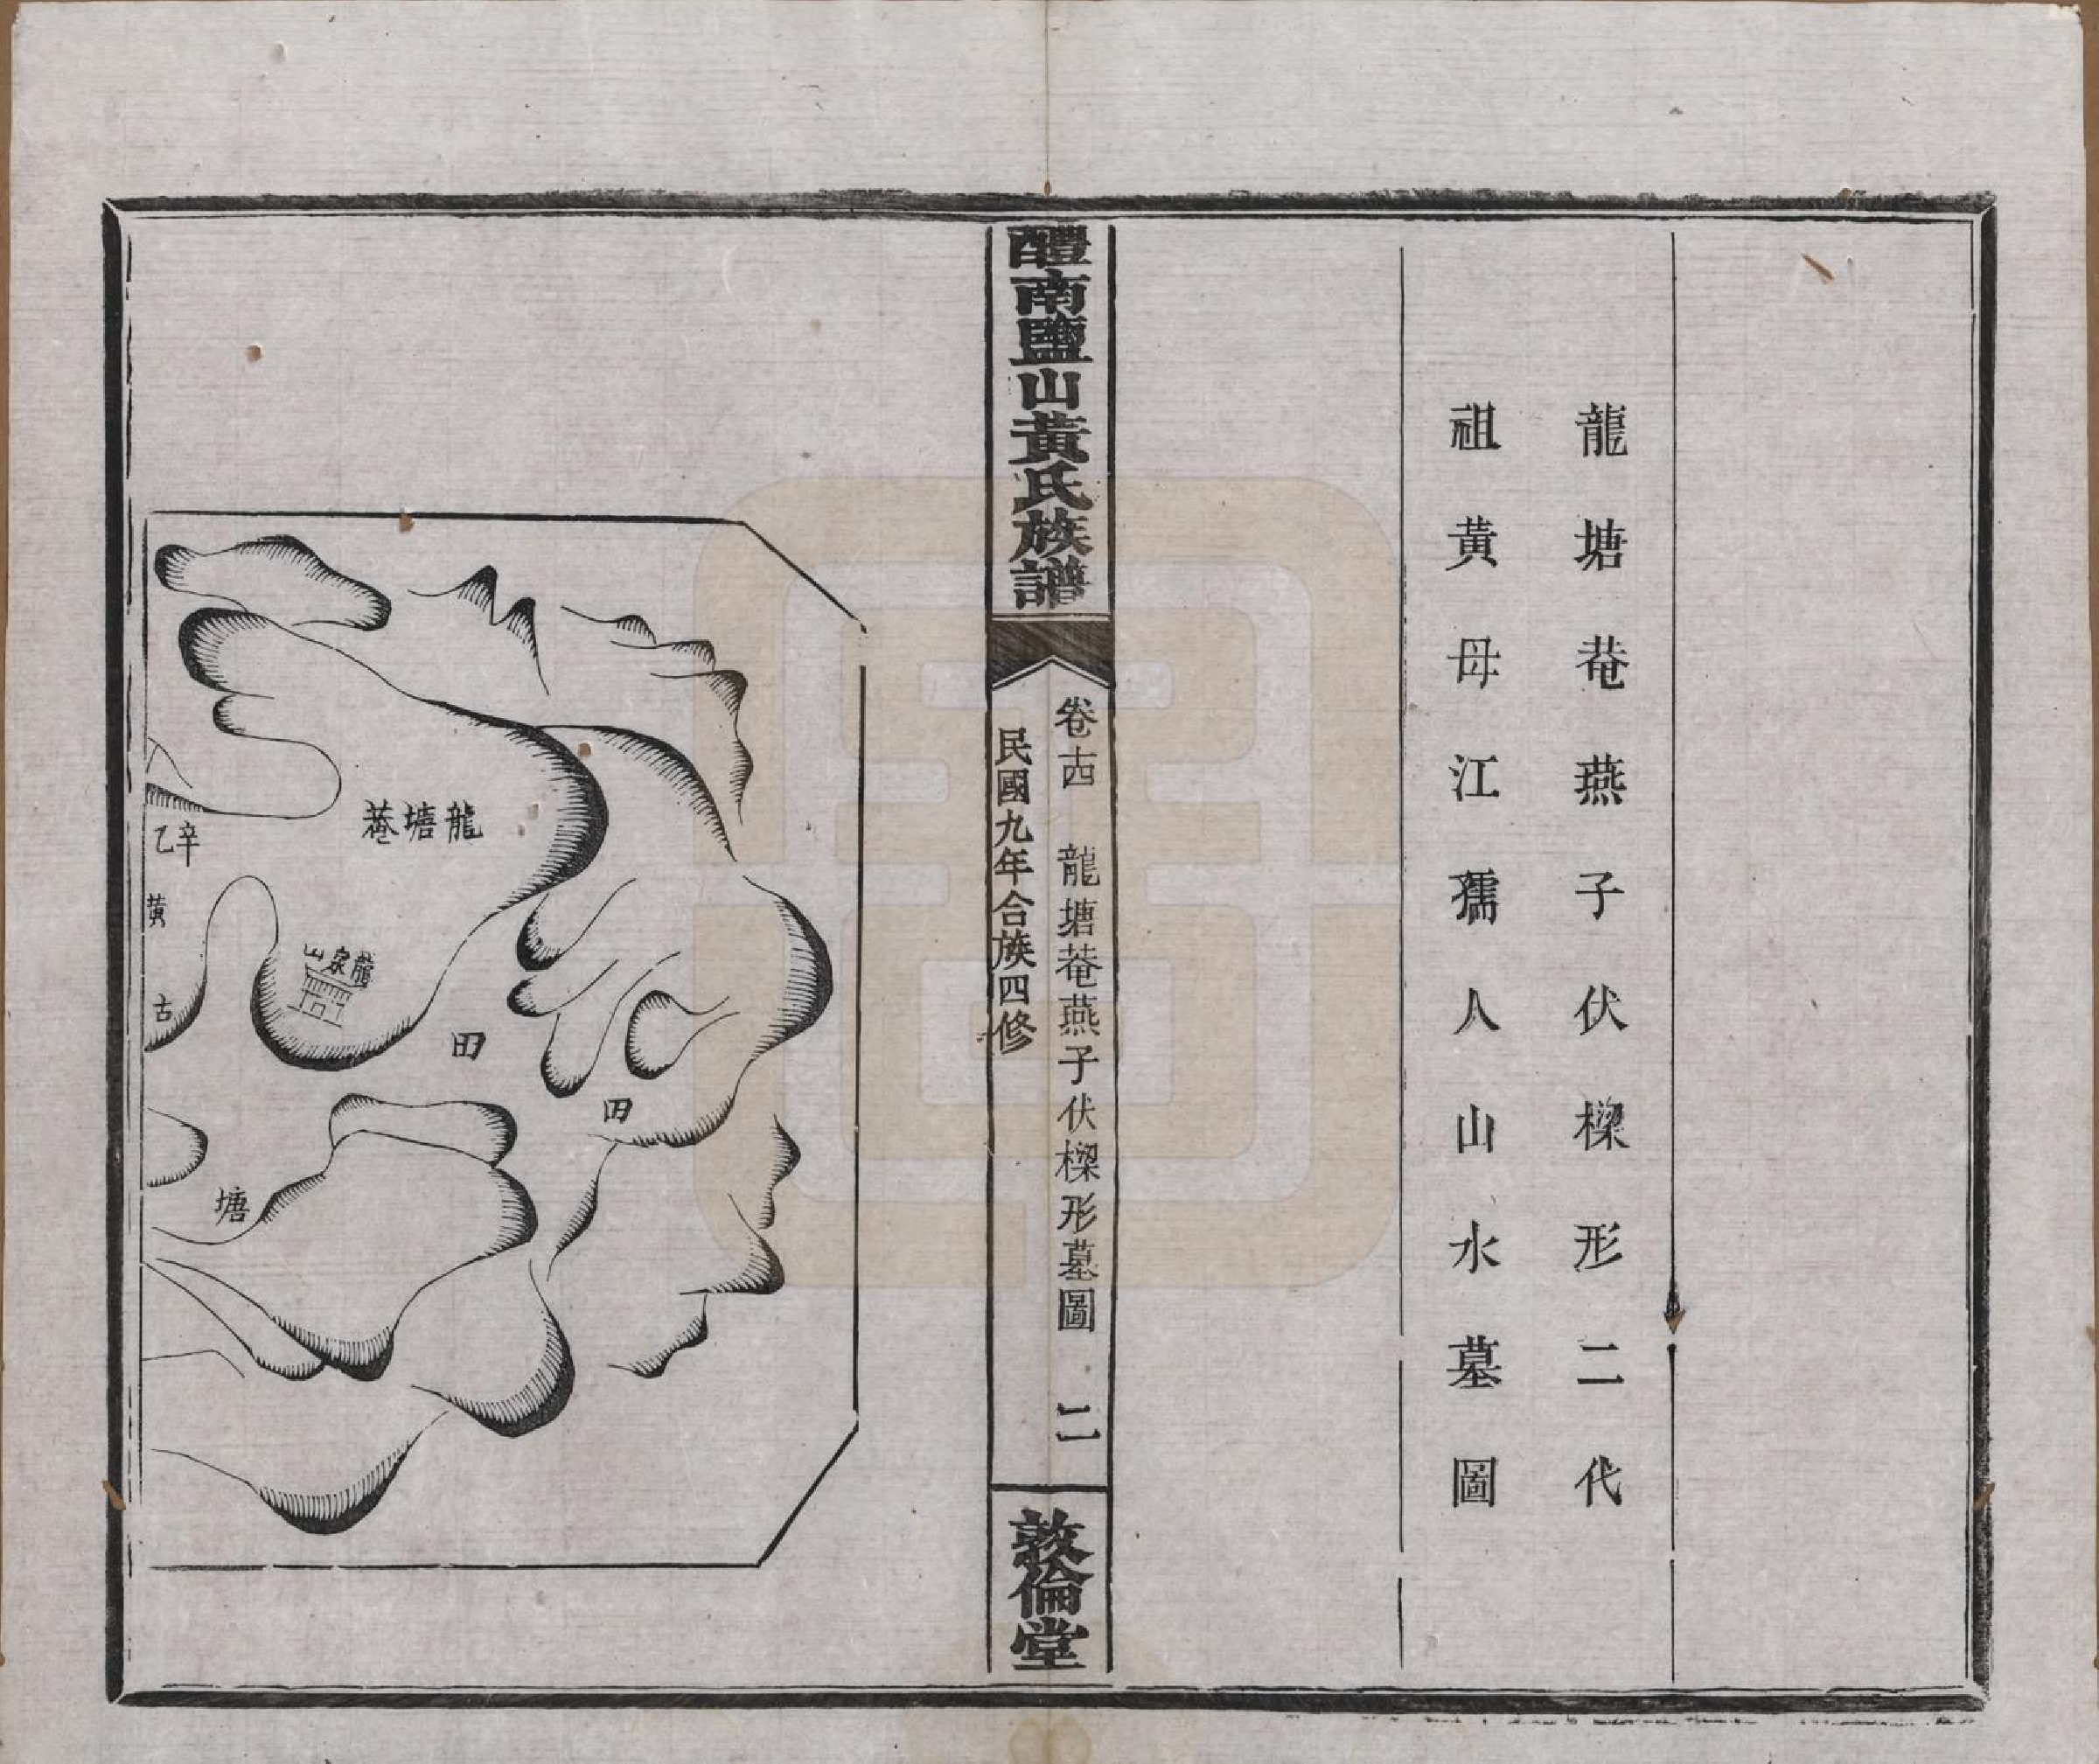 龍塘菴燕子伏樑形二代
祖黃母江孺人山水墓圖
醴南鹽山黃氏族譜
卷十四
龍塘菴燕子伏樑形墓圖
二
民國九年合族四修
敦倫堂
龍塘菴
辛乙
黃
龍泉山
古
田
田
塘